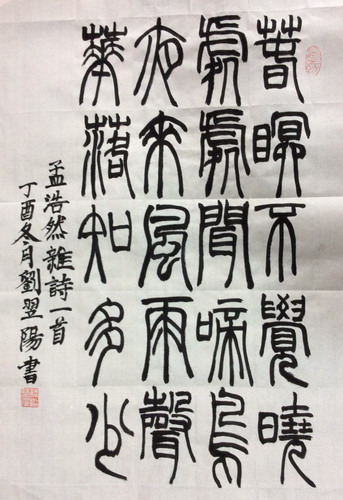 春瞑不覺曉
處處聞嗁鳥
夜來風雨聲
華落知多少
孟浩然雜詩一首
丁酉冬月劉翌陽書